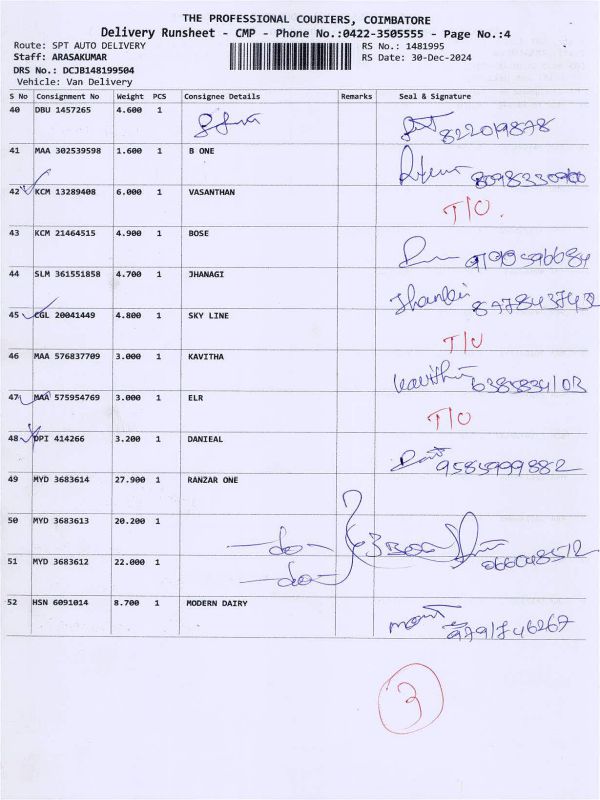 THE PROFESSIONAL COURIERS, COIMBATORE
Delivery Runsheet - CMP - Phone No.:0422-3505555 - Page No.:4
Route: SPT AUTO DELIVERY RS No.: 1481995
Staff: ARASAKUMAR RS Date: 30-Dec-2024
DRS No.: DCJB148199504
Vehicle: Van Delivery
S No Consignment No Weight PCS Consignee Details Remarks Seal & Signature
40 DBU 1457265 4.600 1
822019878
41 MAA 302539598 1.600 1 B ONE
42 KCM 13289408 6.000 1 VASANTHAN
T/O.
43 KCM 21464515 4.900 1 BOSE
44 SLM 361551858 4.700 1 JHANAGI
45 CGL 20041449 4.800 1 SKY LINE
T/O
46 MAA 576837709 3.000 1 KAVITHA
Kavitha
47 MAA 575954769 3.000 1 ELR
T/O
48 DPI 414266 3.200 1 DANIEAL
9585999882
49 MYD 3683614 27.900 1 RANZAR ONE
50 MYD 3683613 20.200 1
-do- 3 Box
51 MYD 3683612 22.000 1
-do-
52 HSN 6091014 8.700 1 MODERN DAIRY
9791746267
3